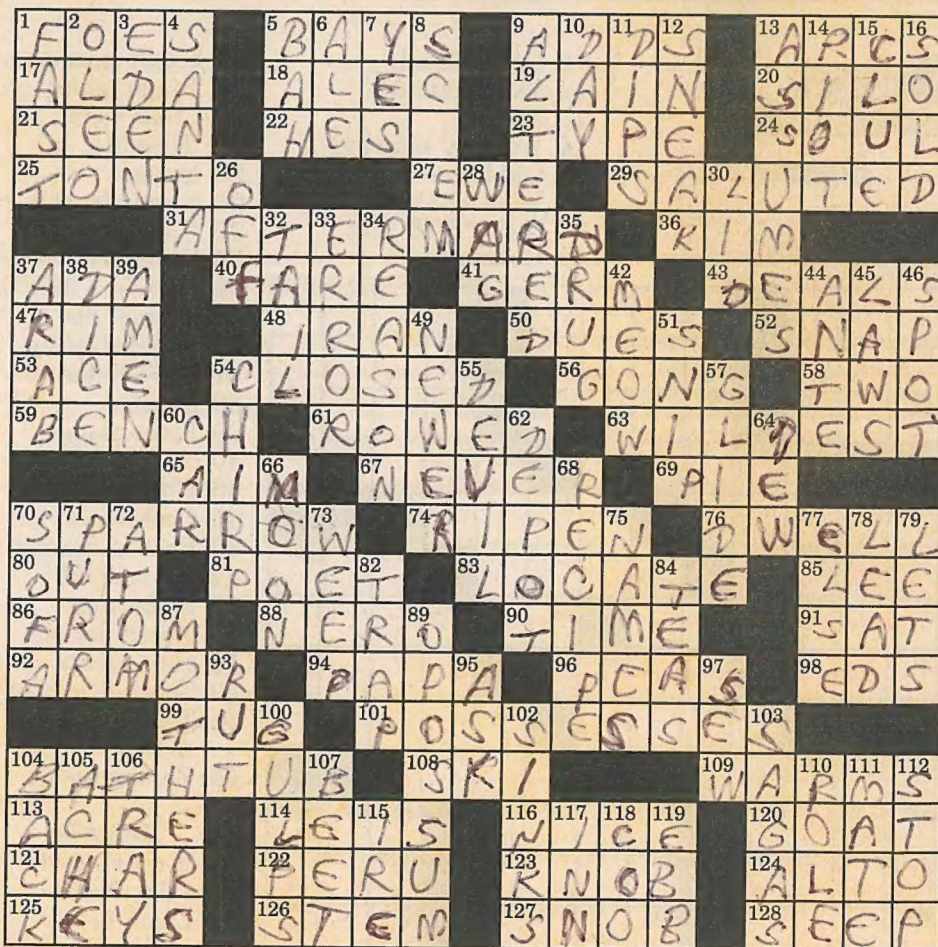 1F 2O 3E 4S 5B 6A 7Y 8S 9A 10D 11D 12S 13A 14R 15C 16S
17A L D A 18A L E C 19L A I N 20S I L O
21S E E N 22H E S 23T Y P E 24S O U L
25T O N T 26O 27E 28W E 29S A 30L U T E D
31A F 32T 33E 34R M A R 35D 36K I M
37A 38D 39A 40F A R E 41G E R 42M 43D E 44A 45L 46S
47R I M 48I R A 49N 50D U E 51S 52S N A P
53A C E 54C L O S E 55D 56G O N 57G 58T W O
59B E N 60C H 61R O W E 62D 63W I L 64D E S T
65A I 66M 67N E V E 68R 69P I E
70S 71P 72A R R O 73W 74R I P E 75N 76D W 77E 78L 79L
80O U T 81P O E 82T 83L O C A 84T E 85L E E
86F R O 87M 88N E R 89O 90T I M E 91S A T
92A R M O 93R 94P A P 95A 96P E A 97S 98E D S
99T U 100B 101P O S 102S E S S E 103S
104B 105A 106T H T U 107B 108S K I 109W A 110R 111M 112S
113A C R E 114L E 115I S 116N 117I 118C 119E 120G O A T
121C H A R 122P E R U 123K N O B 124A L T O
125K E Y S 126S T E M 127S N O B 128S E E P